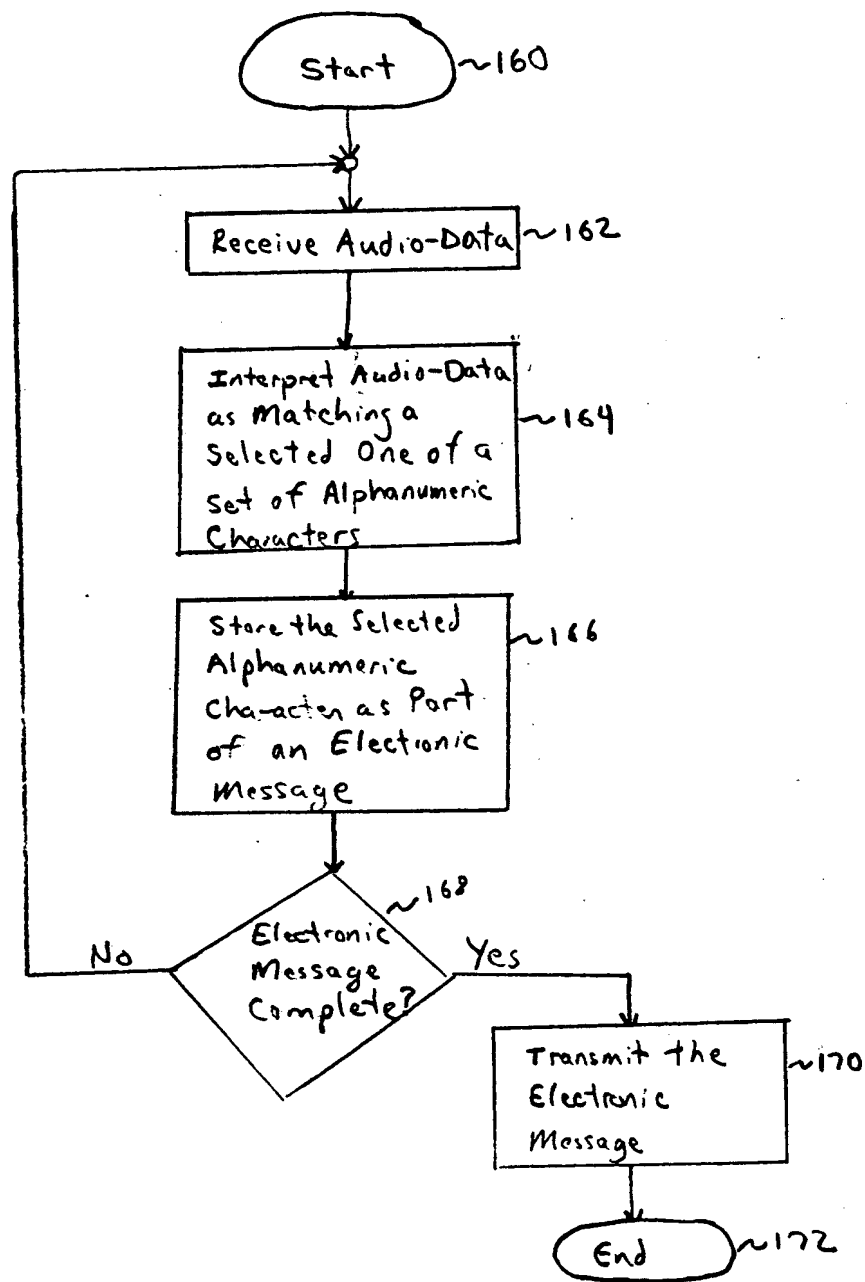 Start ~160
Receive Audio-Data ~162
Interpret Audio-Data
as Matching a
Selected One of a
Set of Alphanumeric
Characters
~164
Store the Selected
Alphanumeric
Character as Part
of an Electronic
Message
~166
~168
Electronic
Message
Complete?
No
Yes
Transmit the
Electronic
Message
~170
End ~172